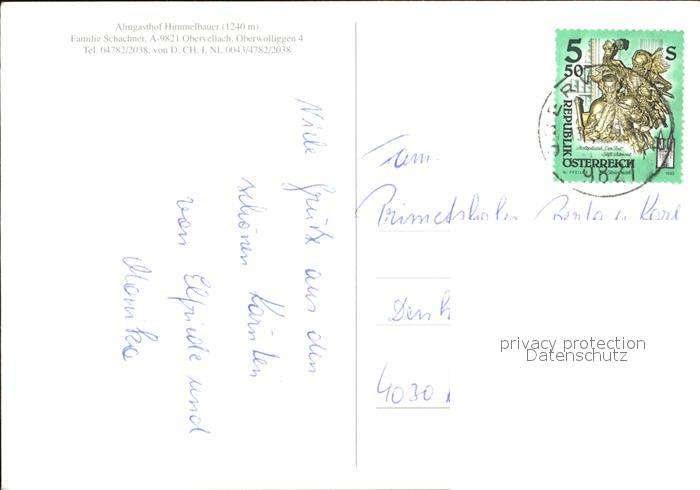 Almgasthof Himmelbauer (1240 m)
Familie Schachner, A-9821 Obervellach, Oberwolliggen 4
Tel. 04782/2038, von D, CH, I, NL 0043/4782/2038
Viele Grüße aus den
schönen Kärnten
von Elfriede und
Monika
5 50 S
REPUBLIK
ÖSTERREICH
9821
Fam.
Berta u Karl
4030
privacy protection
Datenschutz